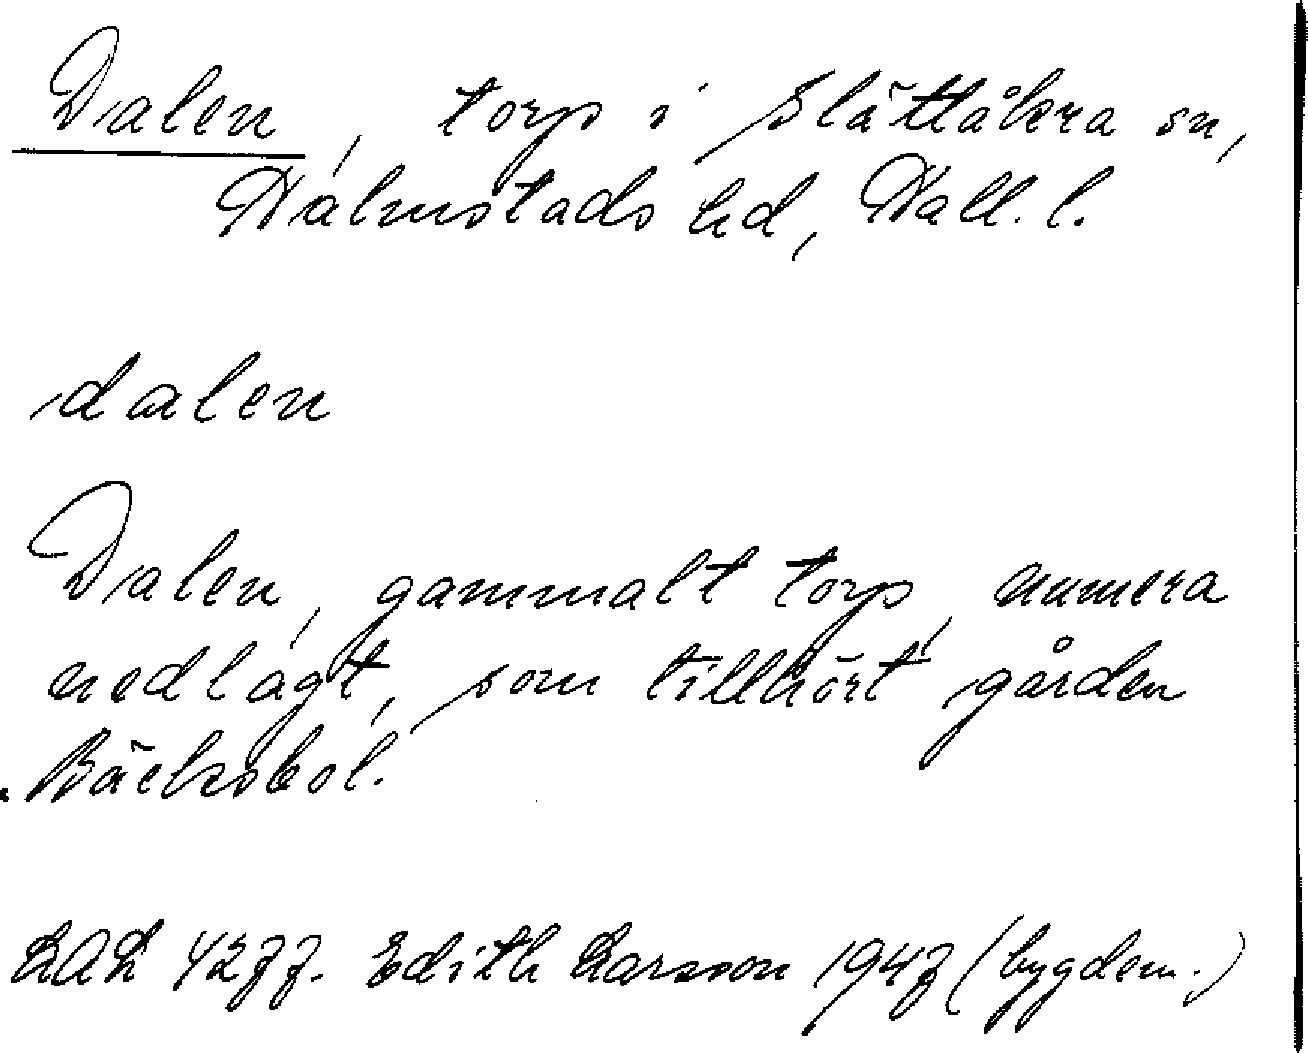 Dalen, torp i Slättåkra sn,
Halmstads hd, Hall. l.
dalen
Dalen, gammalt torp, numera
nedlagt, som tillhört gården
Bäcksbol.
LAL 4277. Edith Larsson 1947 (bygdem.)